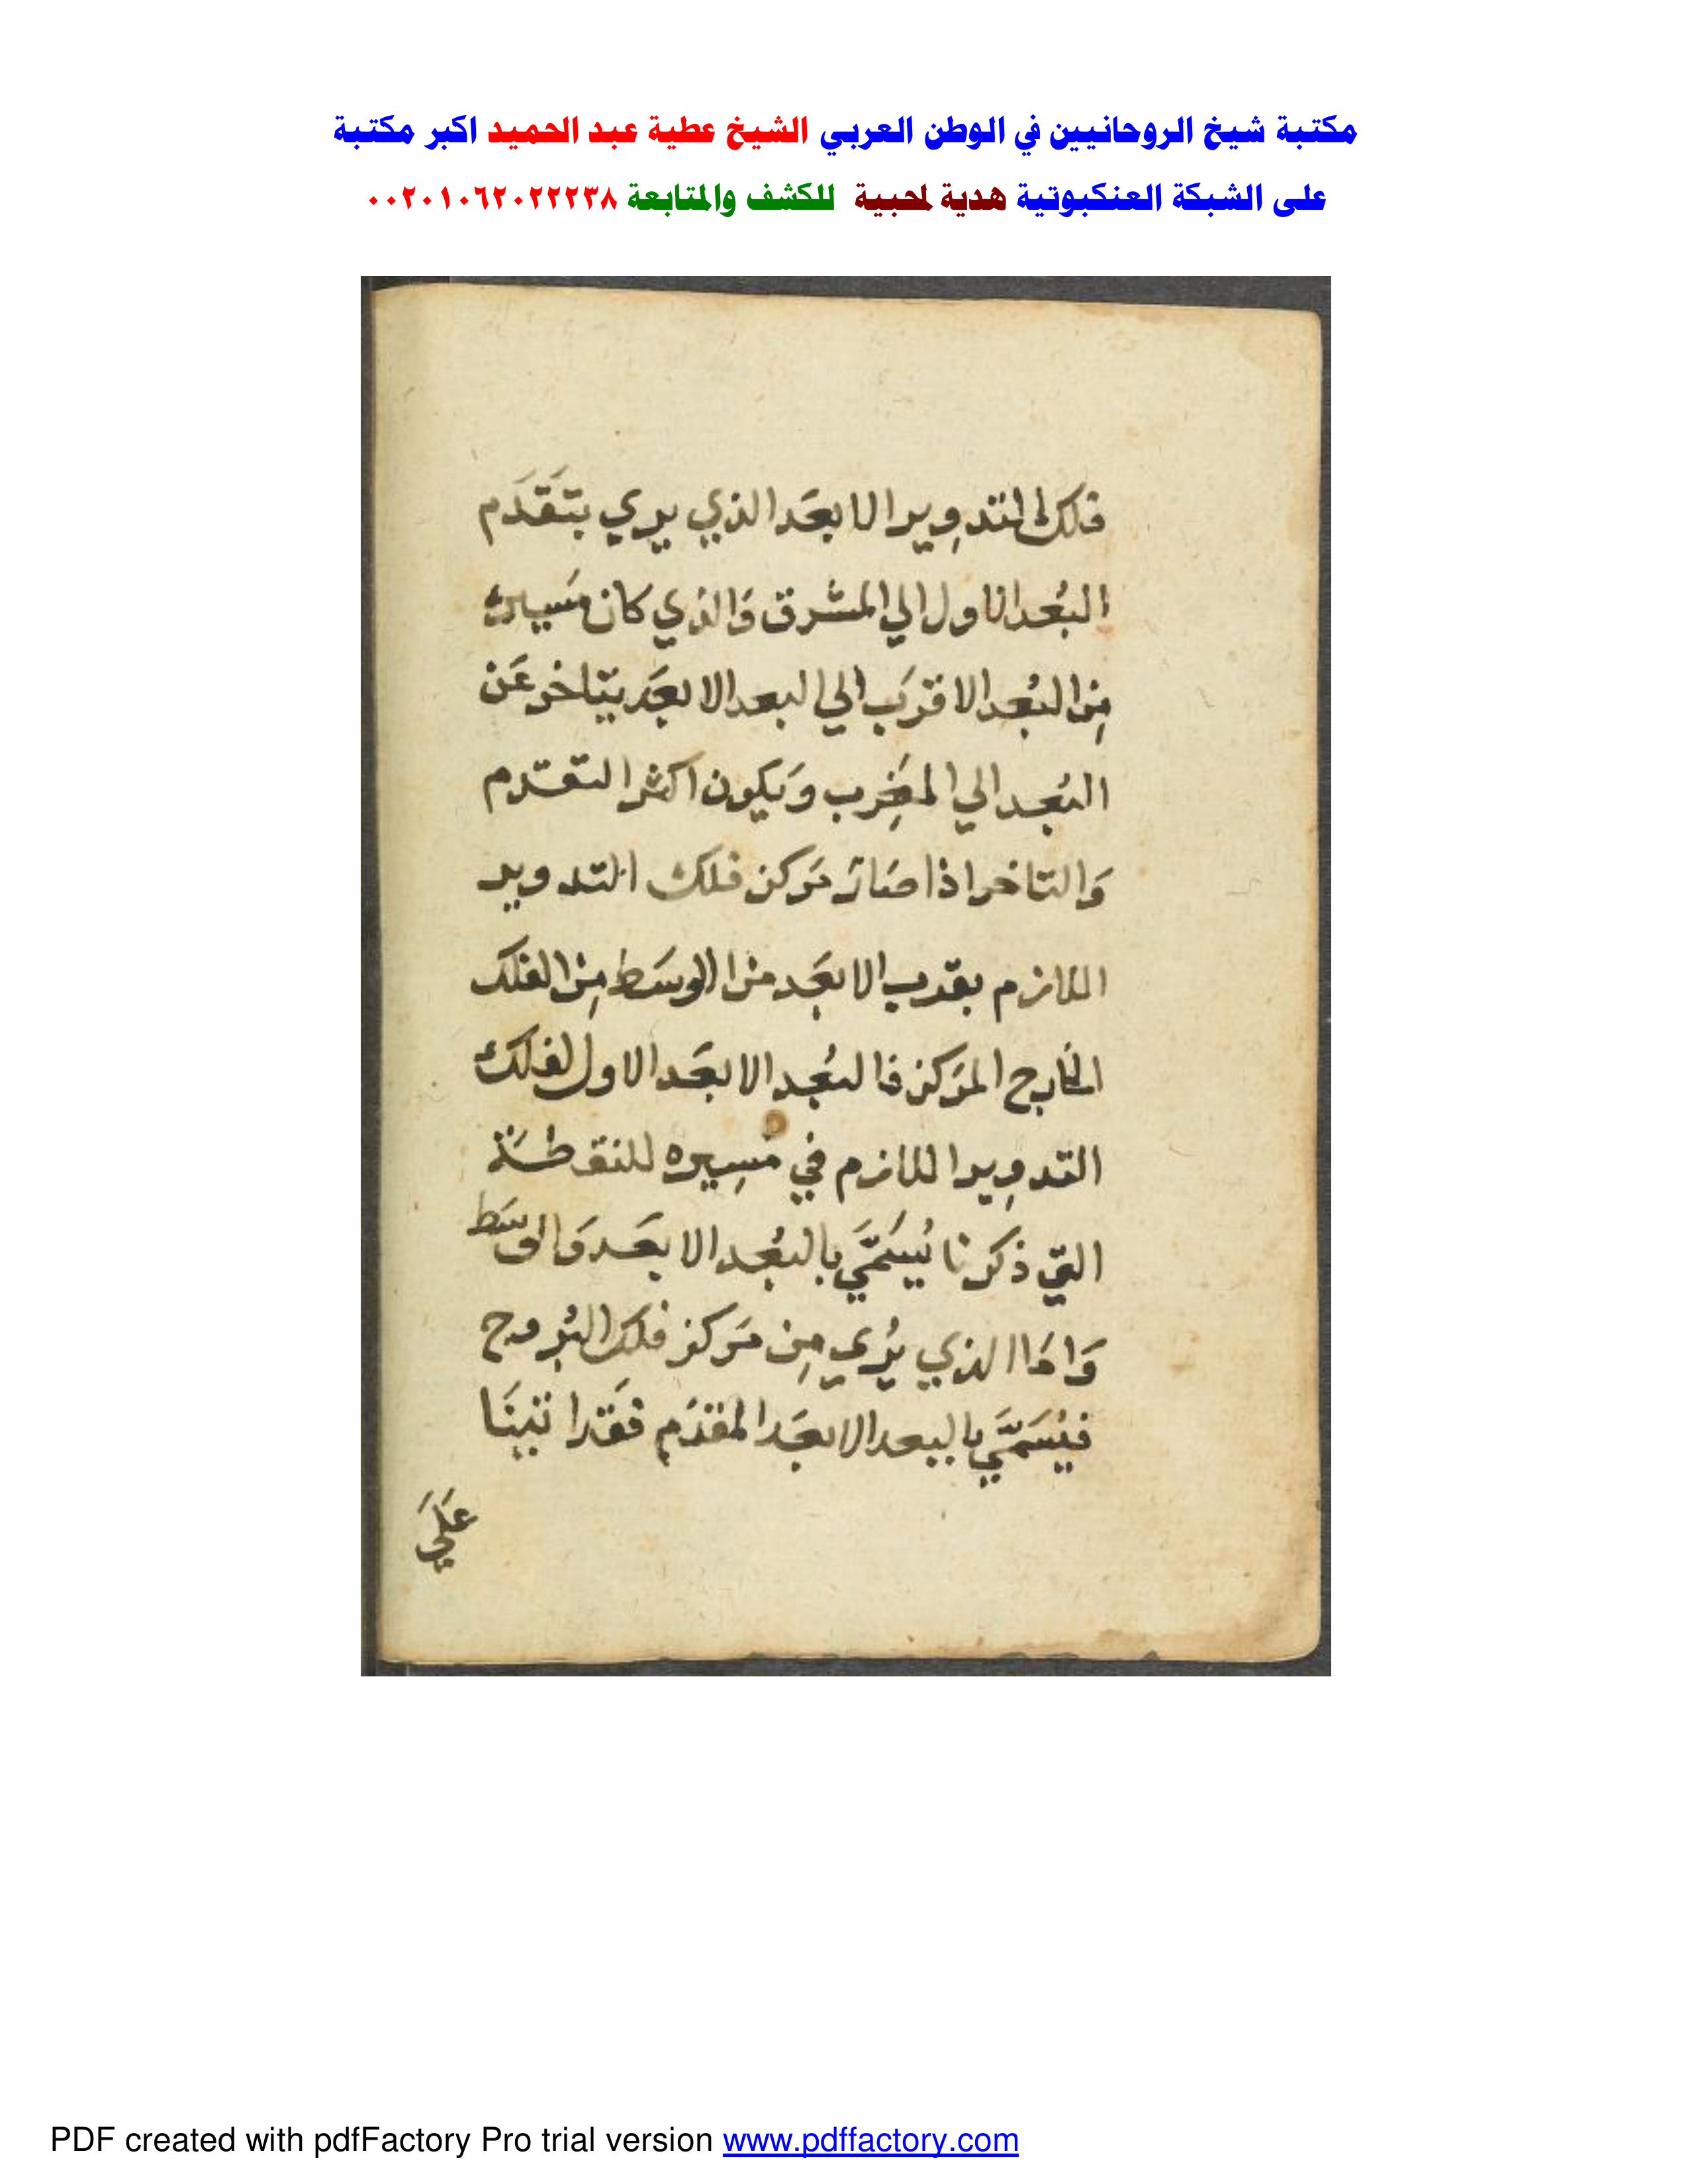 مكتبة شيخ الروحانيين في الوطن العربي الشيخ عطية عبد الحميد اكبر مكتبة
على الشبكة العنكبوتية هدية لمحبية للكشف والمتابعة ٠٠٢٠١٠٦٢٠٢٢٢٣٨
فلك التدوير الابعَد الذي يري بتَقَدَم
البُعد الاول الي المشرق وَالذي كان مَسيره
مِن البُعد الاقرَب الي البعد الابعَد يتاخر عَن
البُعد الي المغِرب وَيكون اكثر التقدم
وَالتاخر اذا صَارَ مَركز فلك التدوير
اللازم بقرب الابعَد من الوسَط مِن الفلك
الخارج المرَكز فالبُعد الابعَد الاول لفلك
التدوِير اللازم في مَسِيره للنقطَة
التي ذكرنا يُسَمَّي بالبُعد الابعَد وَالوسَط
وَامَا الذي يُري مِن مَركز فلك البُروج
فيُسَمَّي بالبعد الابعَد المقدَم فقَد اتينَا
عَلَي
PDF created with pdfFactory Pro trial version www.pdffactory.com